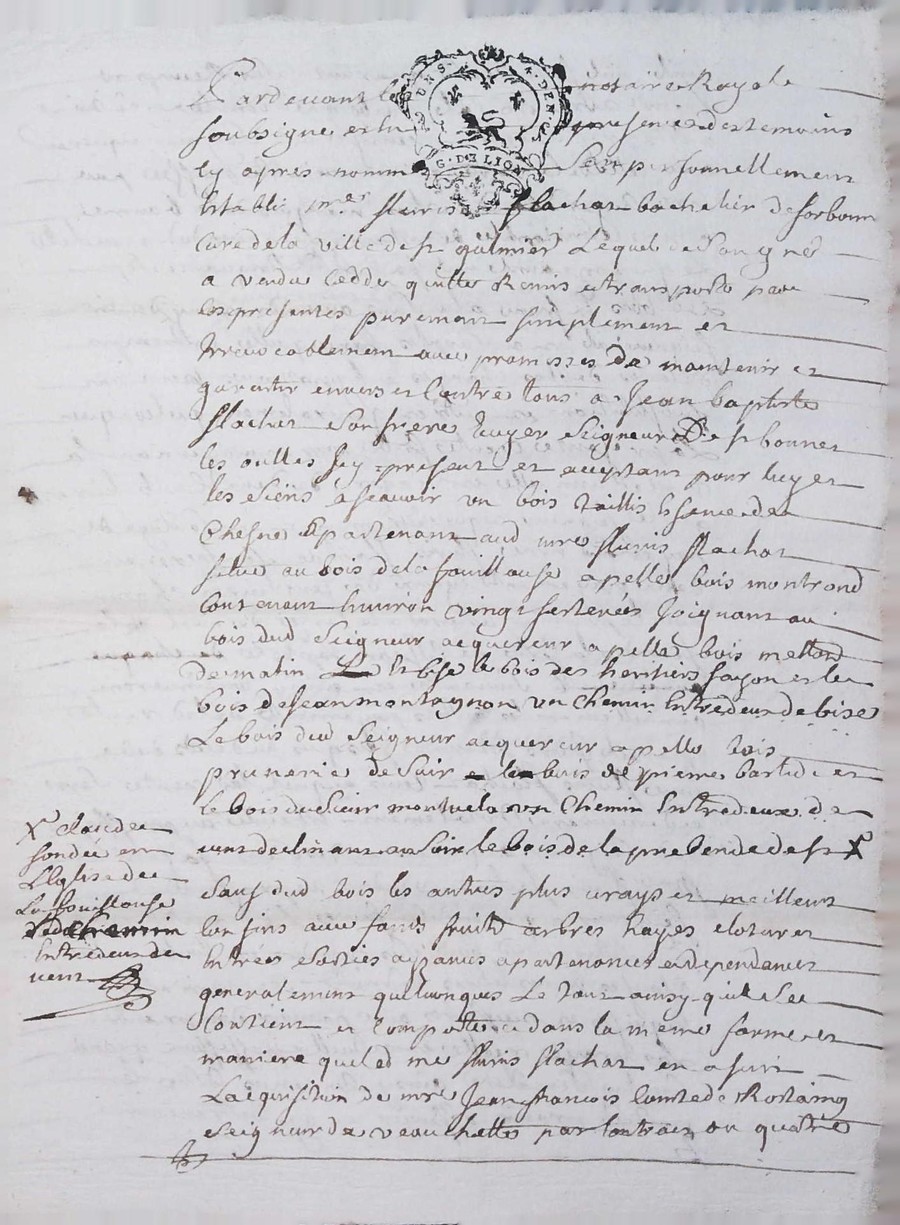 Pardevant le notaire Royale
soubsigne et en presence des temoins
cy apres nommes personnellement
Estably mre fleuris flachat bachelier de sorbonne
cure de la ville de st galmier Lequel de son gré
a vendu cedde quitte Remis et transporté par
ces presentes purement simplement et
Irrevocablement avec promesses de maintenir et
garentir envers et Contre tous a Jean baptiste
flachat son frere Ecuyer seigneur De st bonnet
les oulles Icy present et acceptant pour luy et
les siens ascavoir un bois taillis Essence de
Chesne Apartenant aud mre fleuris flachat
situé au bois de la fouillouse apellé bois montrond
Contenant Environ vingt festerées Joignant au
bois dud seigneur acquereur apellé bois
de matin Et bise le bois des heritiers fayon et le
bois de Jean montagnon un Chemin Entredeux de bise
Le bois dud seigneur acquereur apellé bois
prunerie de soir le bois de pierre bastide et
le bois du sieur montuela un Chemin Entredeux de
vent declinant au soir le bois de la prebende de st X
sauf dud bois les autres plus vrays et meilleurs
Confins avec fonds fruits arbres hayes clotures
Entrées sorties aizances apartenances et dependances
generalement quelconques Le tout ainsy quil se
Contient et Comporte et dans la meme forme et
maniere que led mre fleuris flachat en a fait
Lacquisition de mre Jean francois Comte de Rostaing
seigneur de veauchette par Contract du quatre
X Claude
fondée en
L'Eglise de
La fouillouse
Chemin
Entredeux de
vent